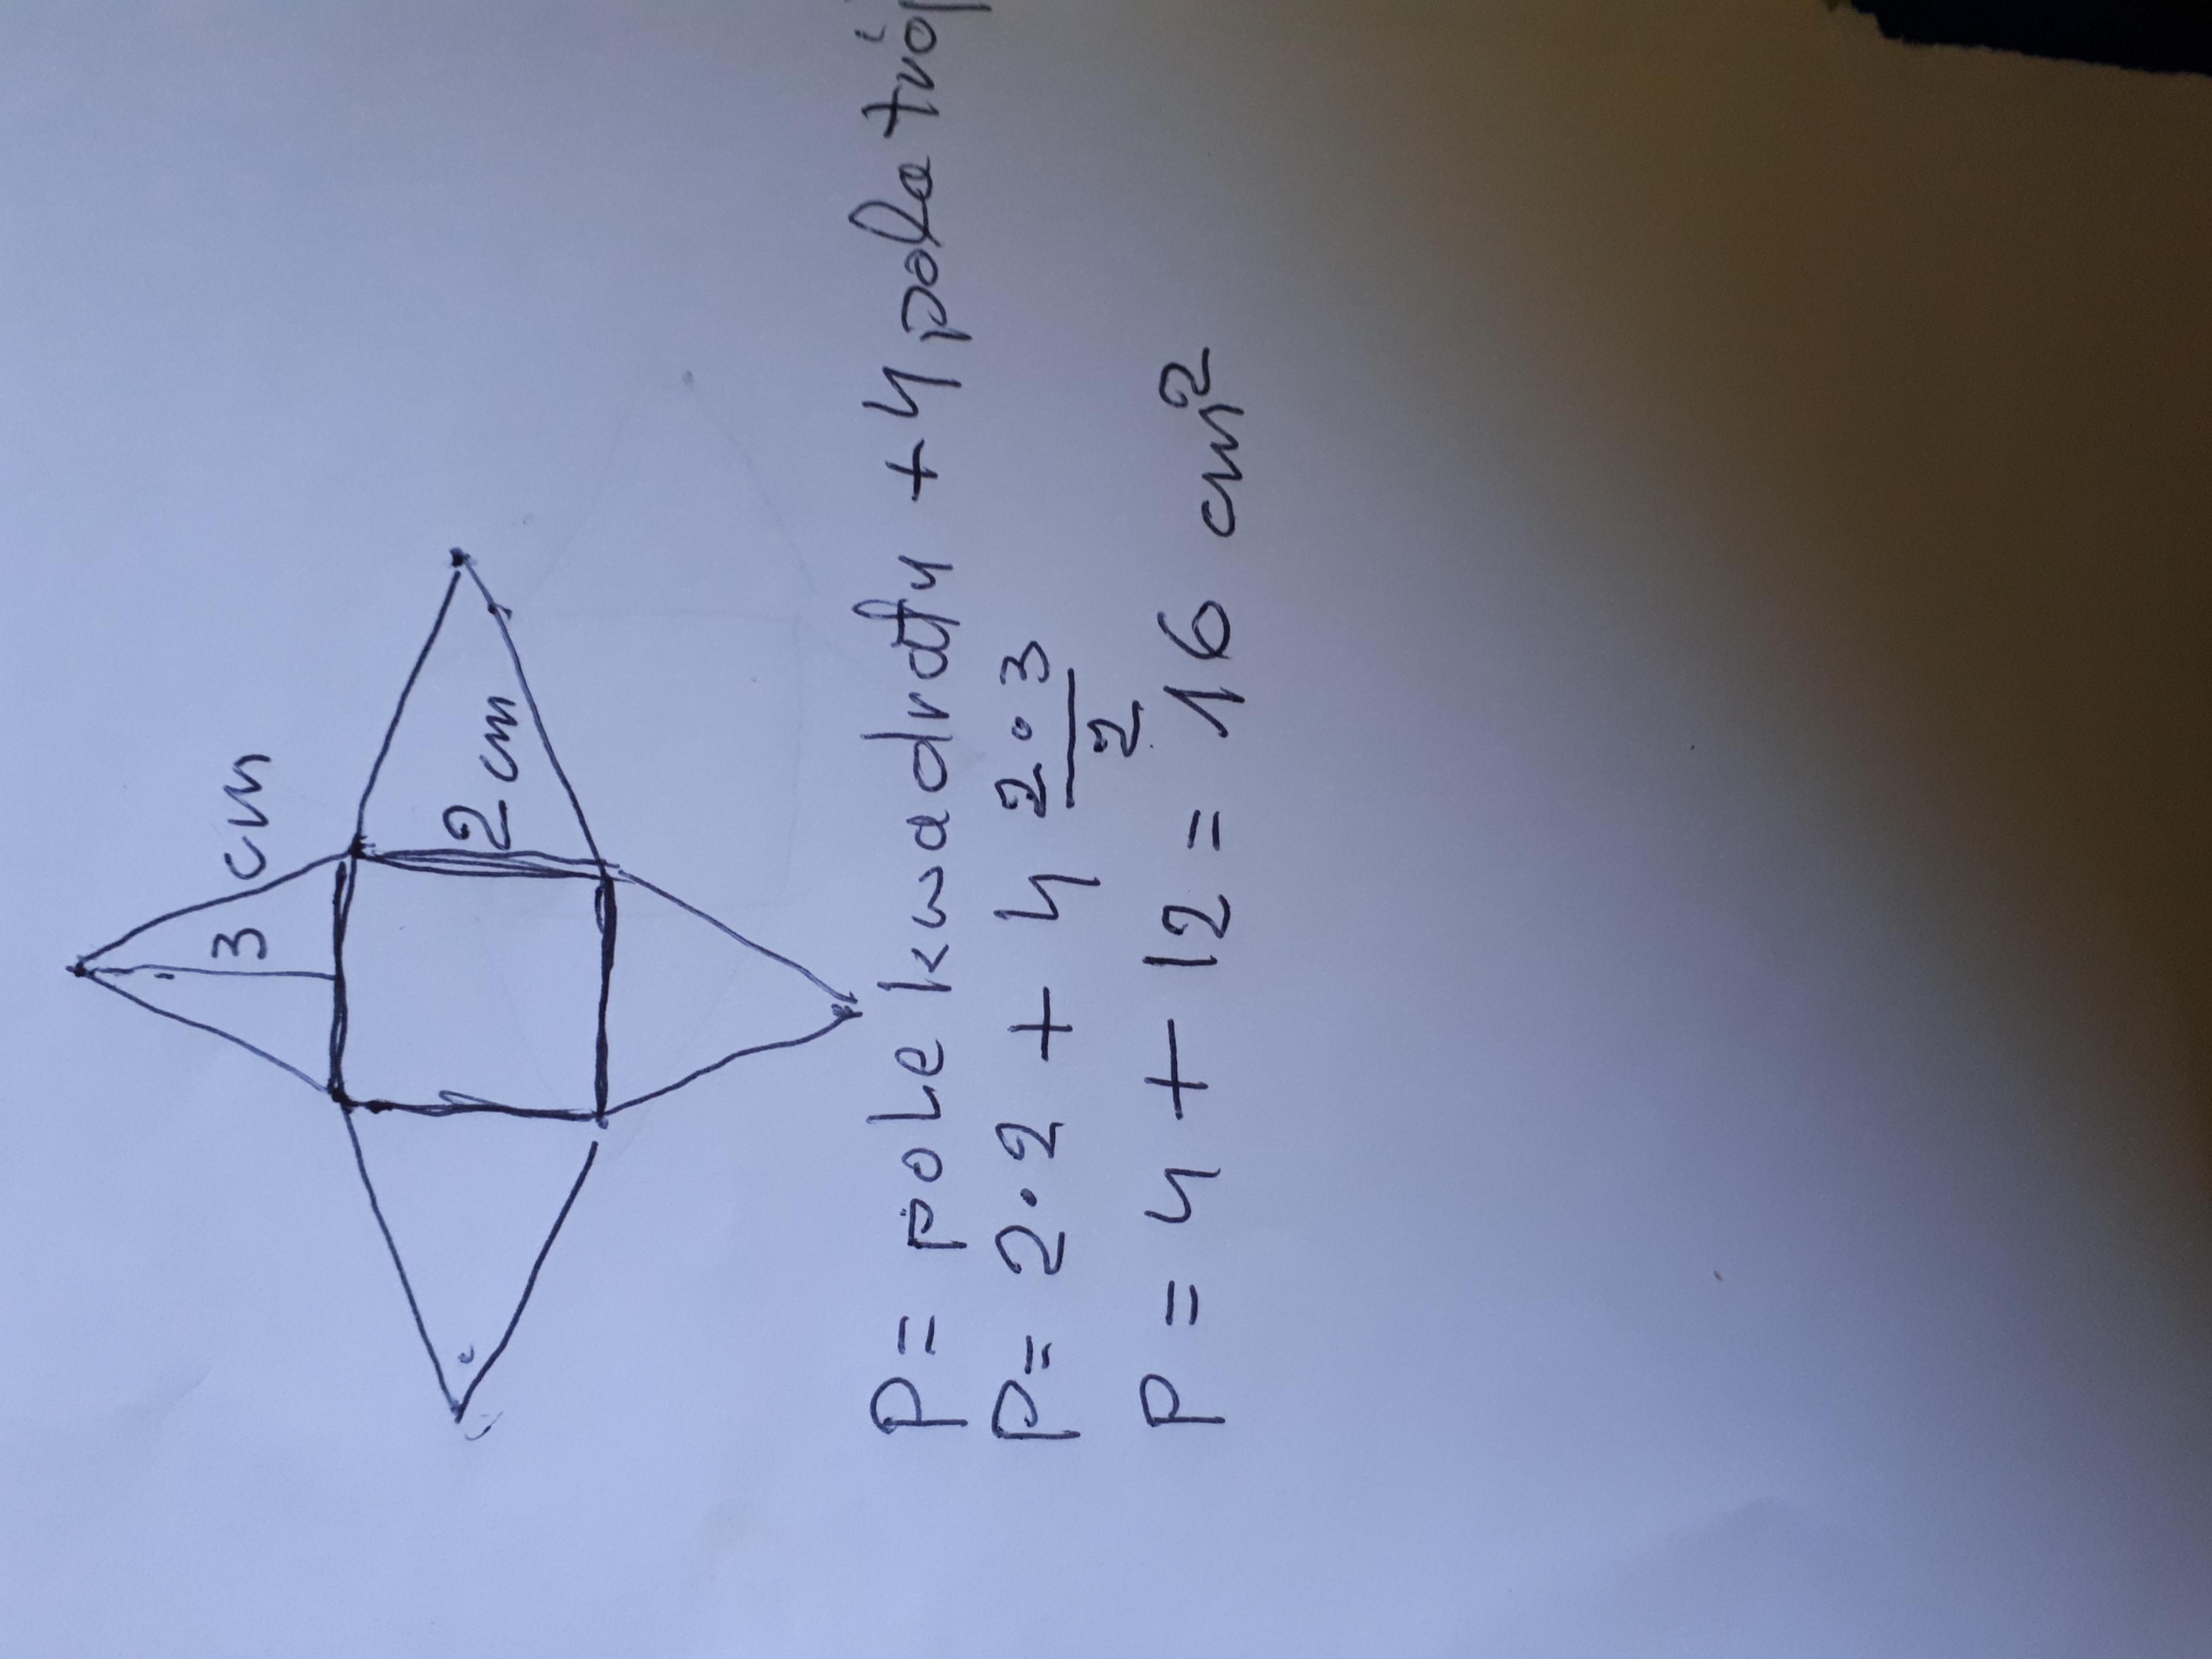 3 cm
2 cm
P = pole kwadratu + 4 pola
P = 2·2 + 4 2·3/2
P = 4 + 12 = 16 cm²